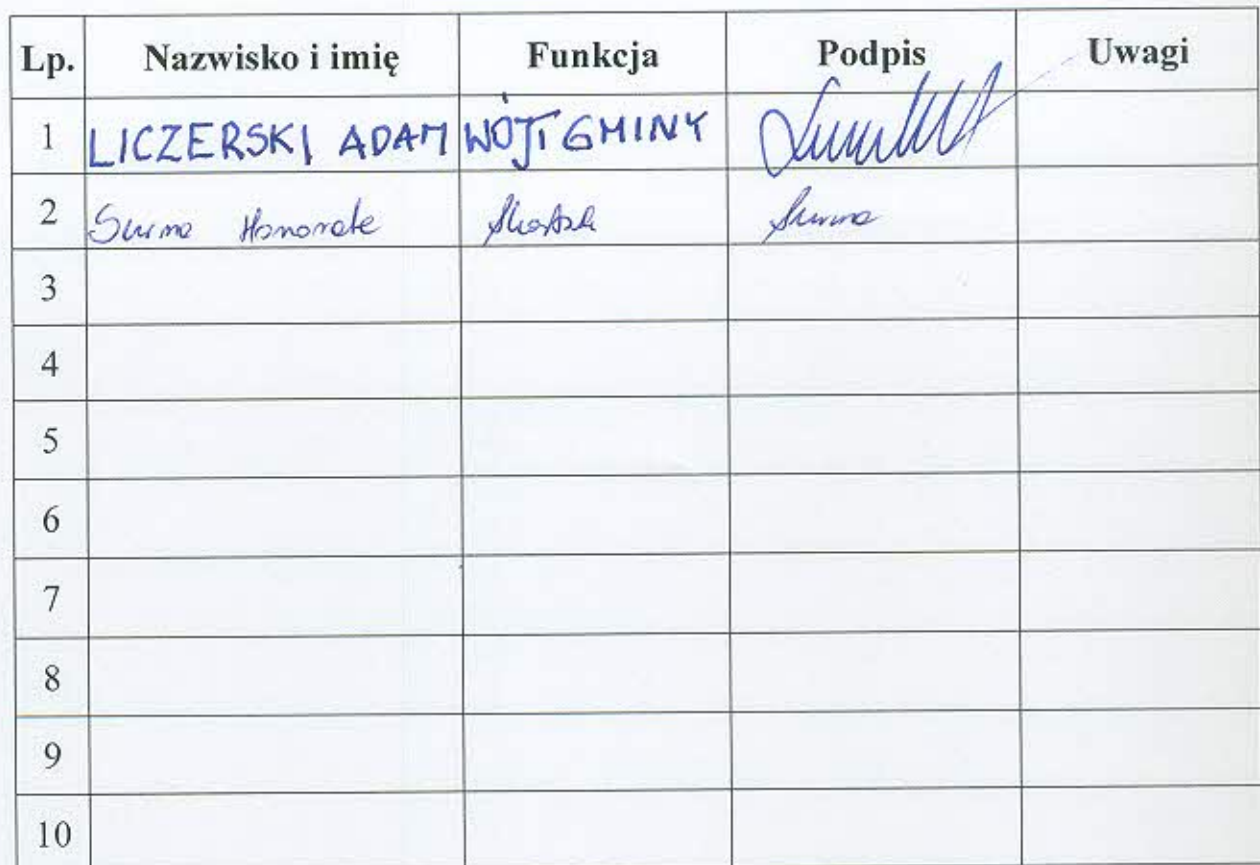 Lp. Nazwisko i imię Funkcja Podpis Uwagi
1 LICZERSKI ADAM WÓJT GMINY
2 Surma Honorata
3
4
5
6
7
8
9
10